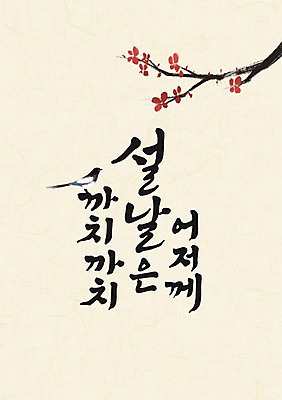 까치까치
설날은
어저께